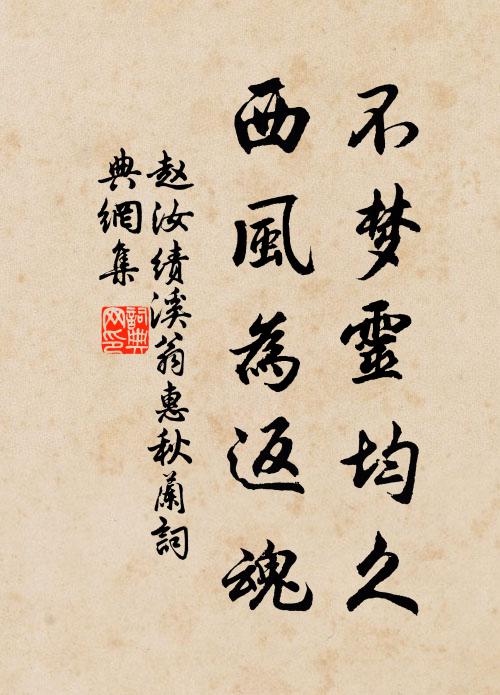 不梦靈均久
西風為返魂
赵汝绩溪翁惠秋蘭詞
典網集
詞典網印